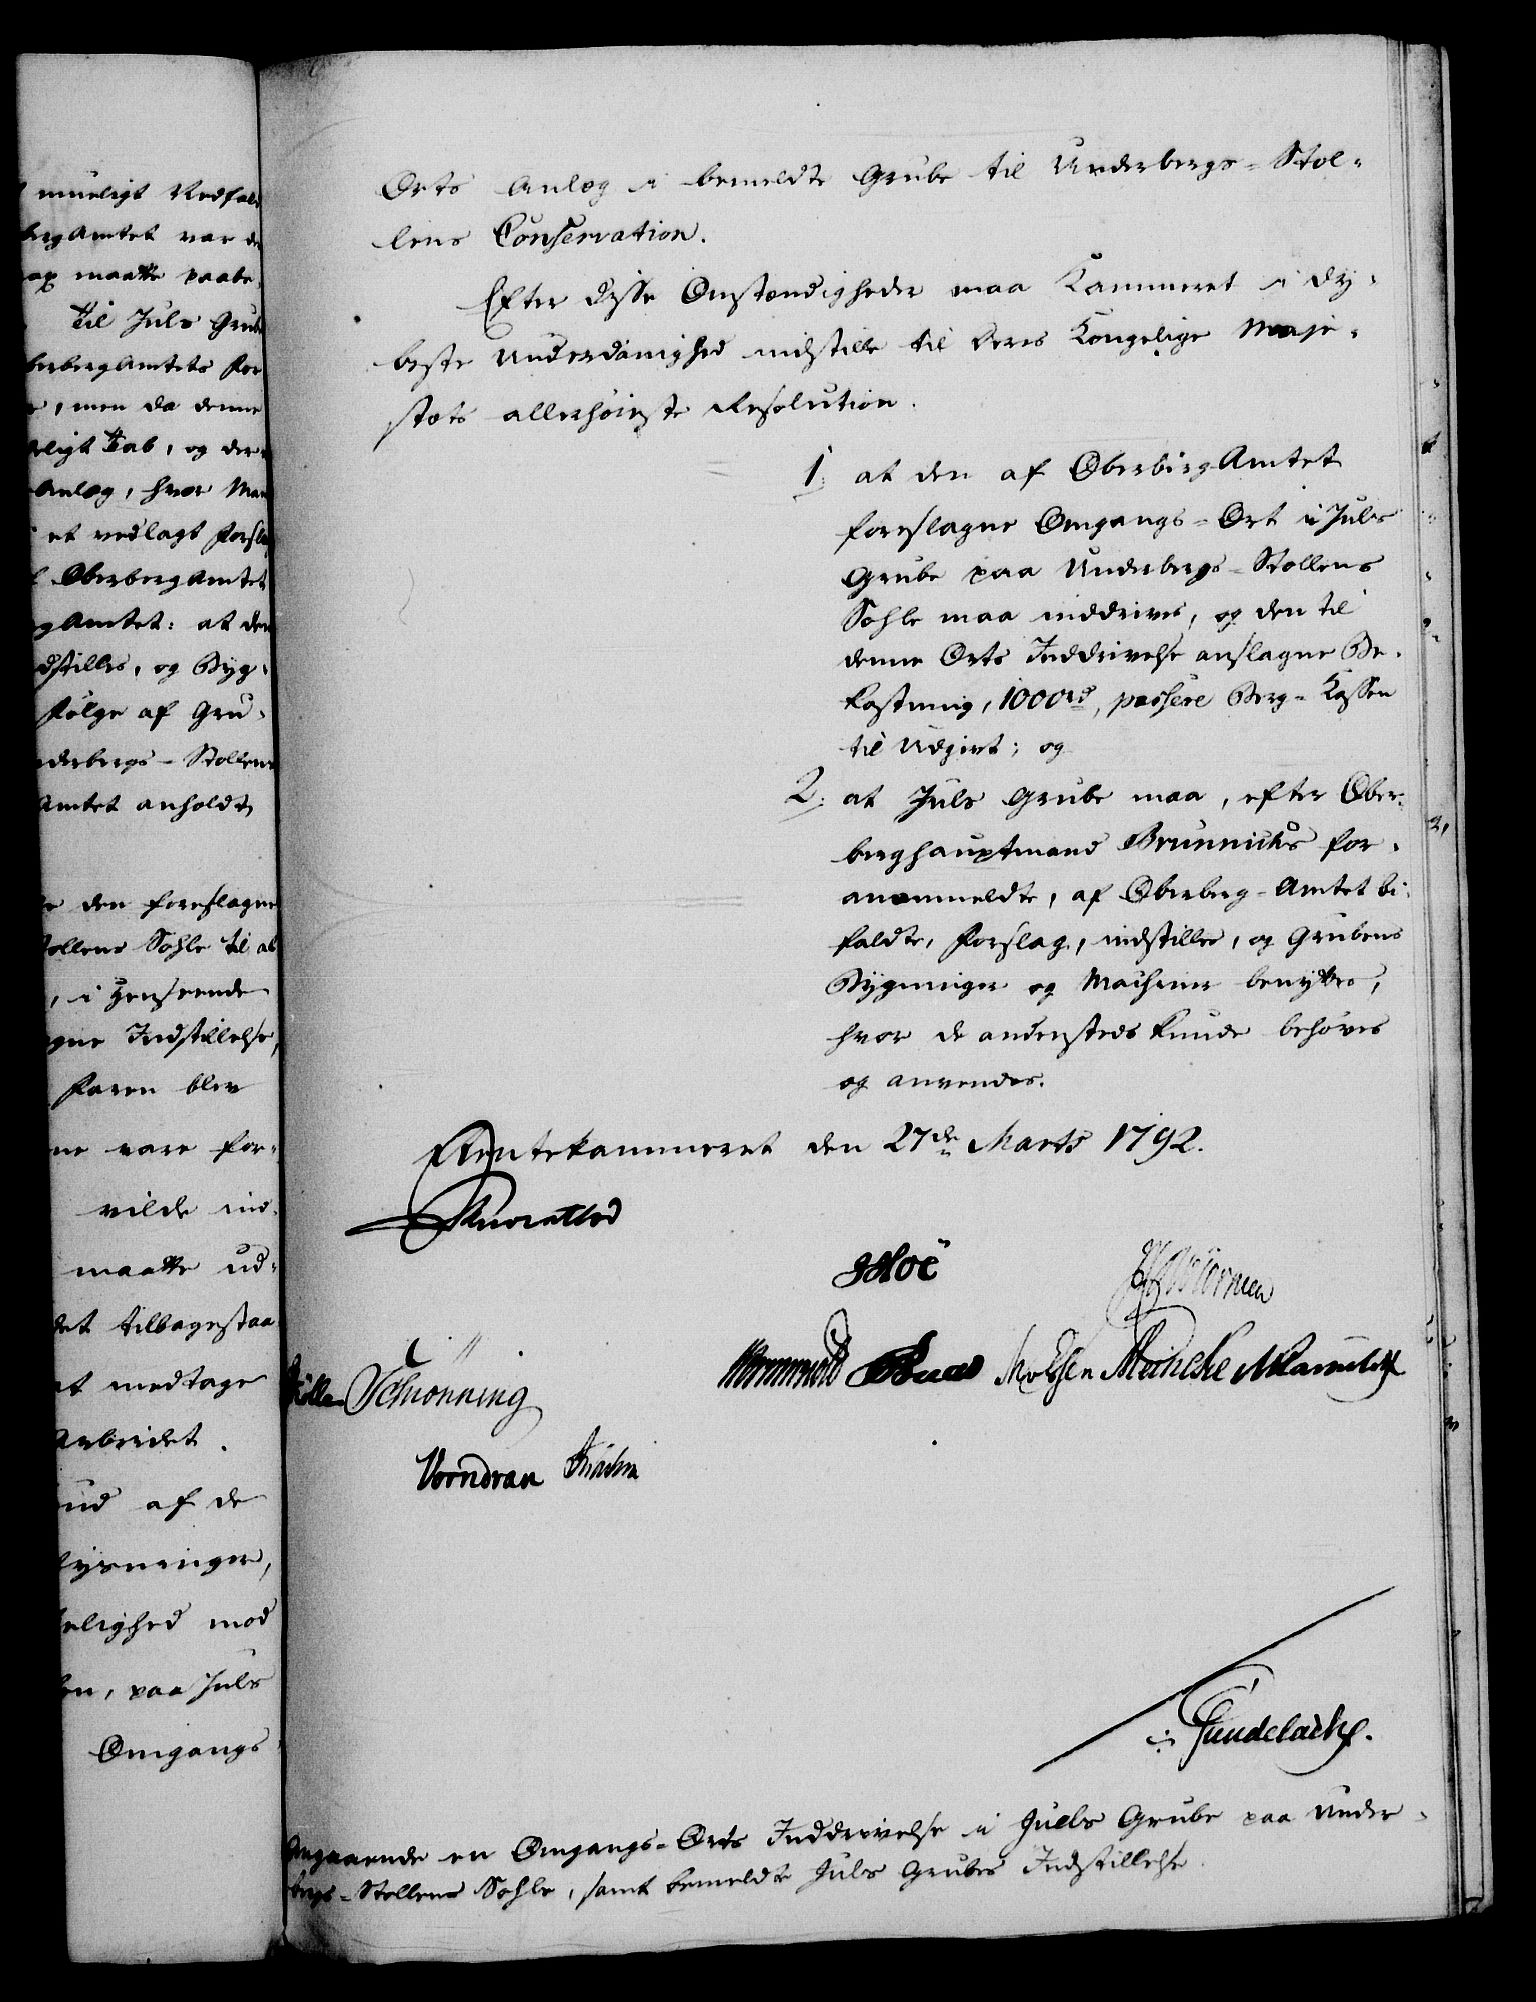 mueligt Vedfald
bergAmtet var de
maatte paabe
til Juls Grube
berbergAmtets For
, men da denne
ligt Tab, og der
Anlæg, hvor Man
et vedlagt Forslag
OberbergAmtet
gAmtet: at den
dstilles, og Byg-
Følge af Gru-
nderbergs-Stollens
Amtet anholdt
den foreslagne
tollens Sohle til at
, i Henseende
gne Indstillelse,
Faren blev
ne vare for-
vilde ind-
maatte ud-
det tilbagestaa
at medtage
Arbeidet.
ud af de
lysninger,
elighed mod
en, paa Juls
Omgangs
Orts Anlæg i bemeldte Grube til Underbergs-Stol-
lens Conservation.
Efter disse Omstændigheder maa Kammeret i dy-
beste Underdanighed indstille til Deres Kongelige Maje-
stæts allerhøieste Resolution.
1: at den af OberbergAmtet
foreslagne Omgangs-Ort i Juls
Grube paa Underbergs-Stollens
Sohle maa inddrives, og den til
denne Orts Inddrivelse anslagne Be-
kostning, 1000 rd, passere Berg-Kassen
til Udgivt; og
2: at Juls Grube maa, efter Ober-
berghauptmand Brünnichs for-
anommeldte, af Oberberg-Amtet bi-
faldte, Forslag, indstilles, og Grubens
Bygninger og Machiner benyttes,
hvor de andensteds kunde behøves
og anvendes.
Rentekammeret den 27de Marts 1792.
Hoë
Schionning
Wormskiold
Meincke
Vorndran
Gundelach.
Angaaende en Omgangs-Orts Inddrivelse i Juels Grube paa Under-
bergs-Stollens Sohle, samt bemeldte Juls Grubes Indstillelse.